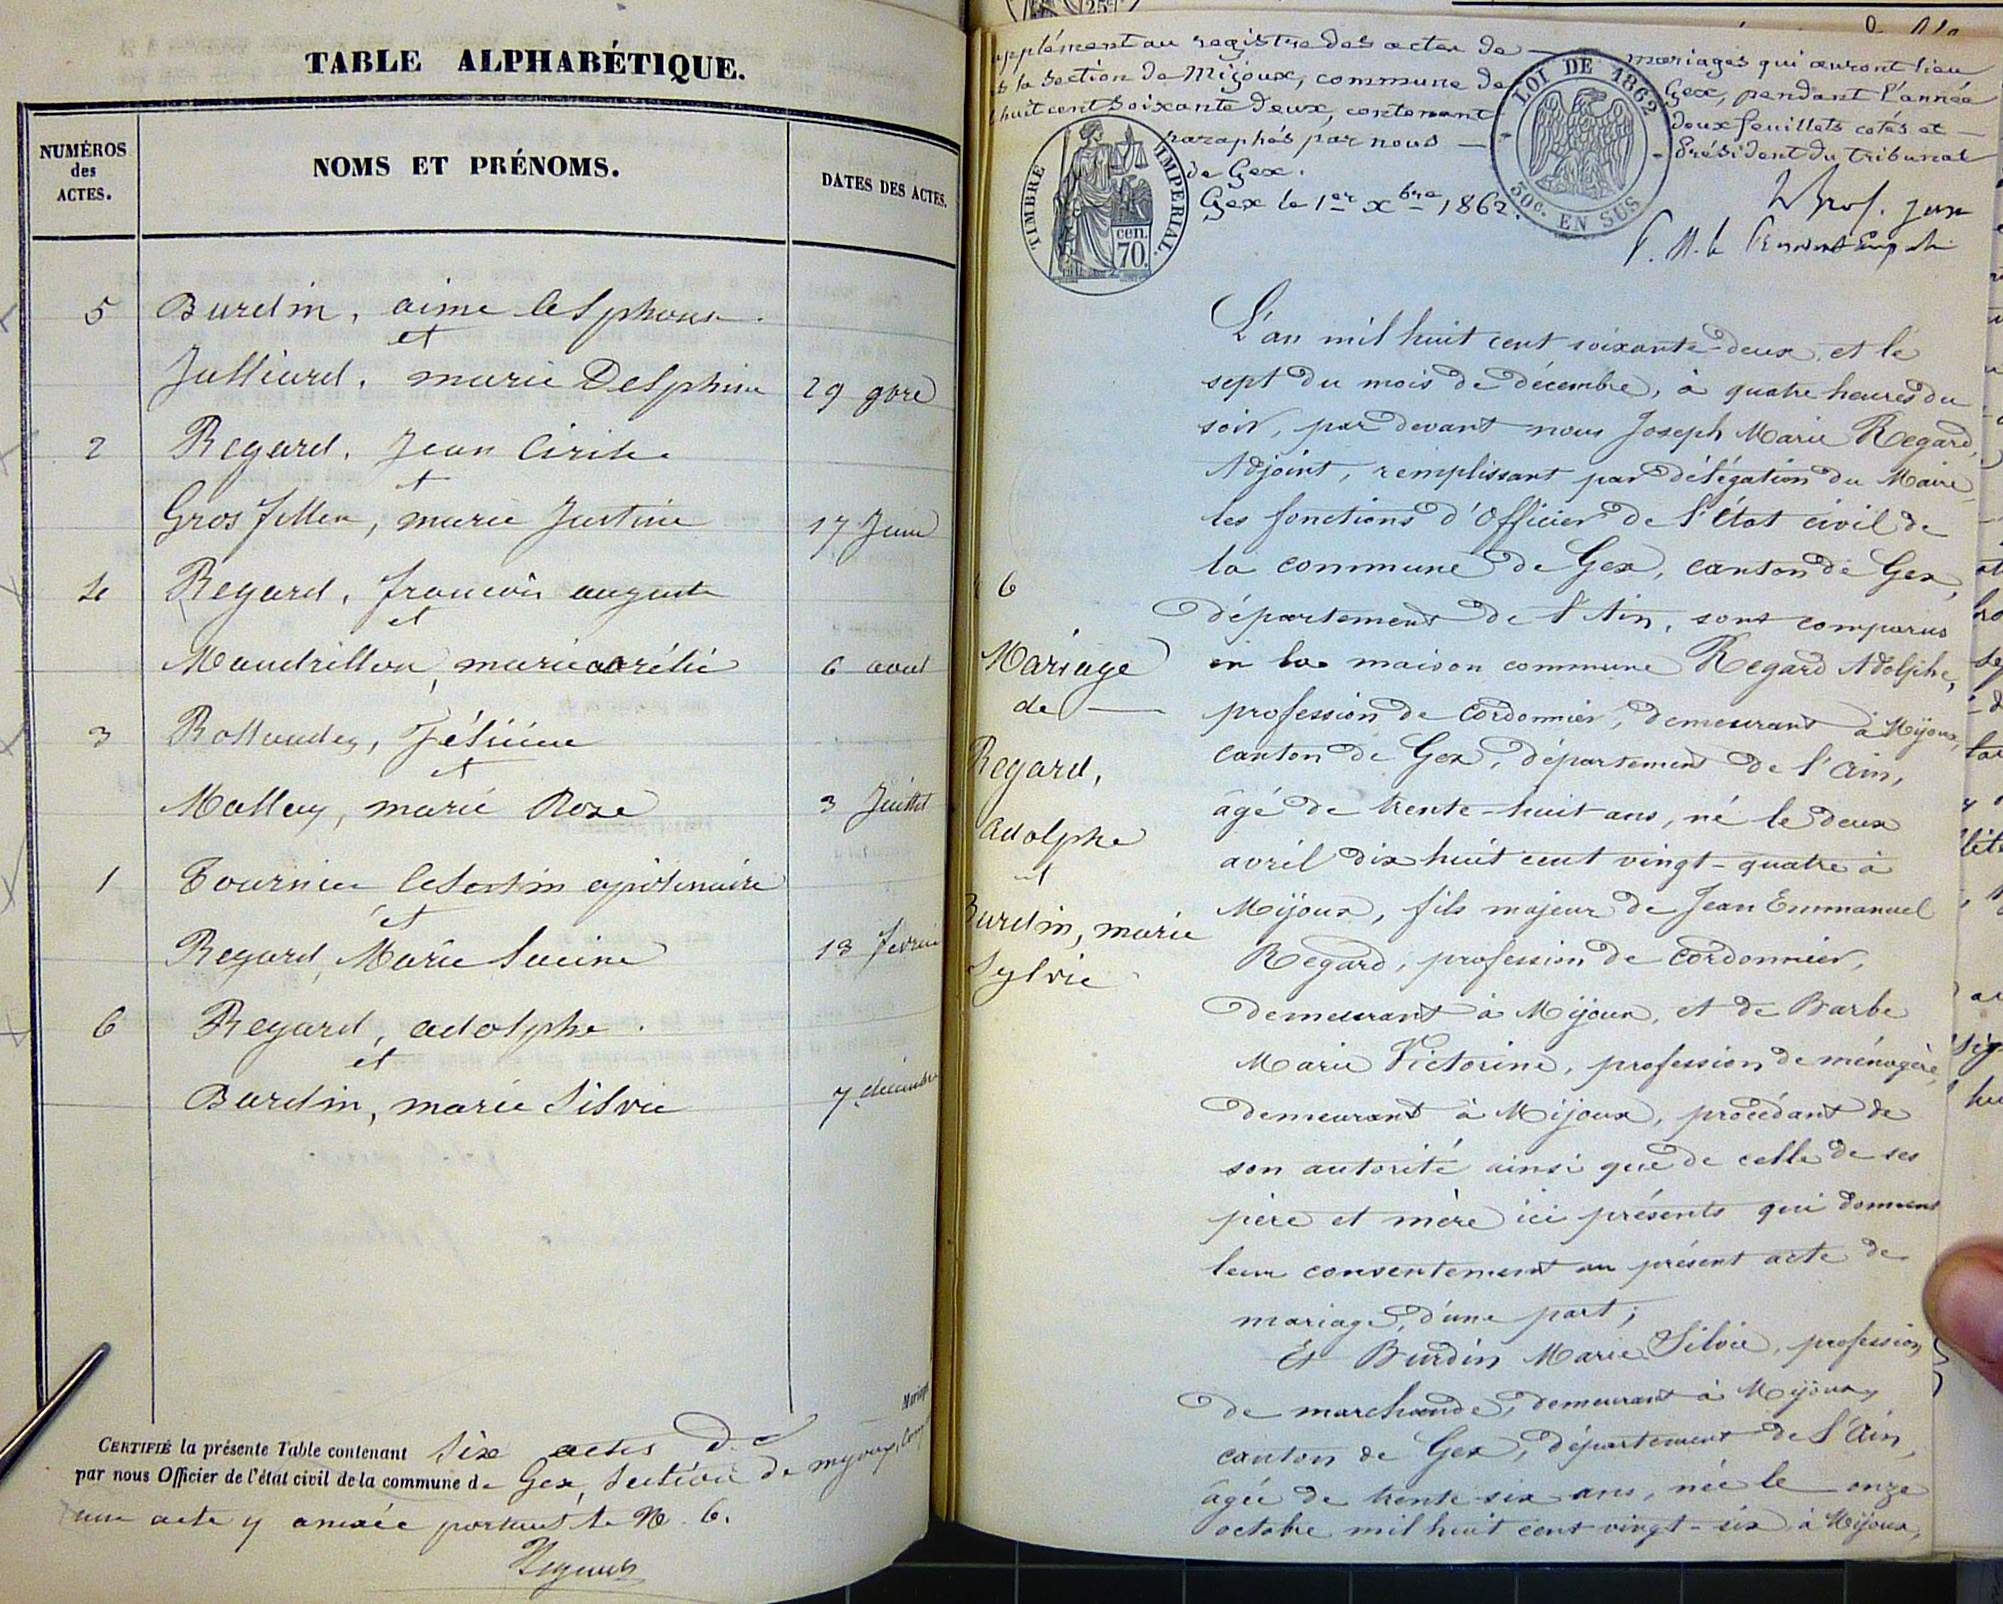 TABLE ALPHABÉTIQUE.
NUMÉROS
des
ACTES.
NOMS ET PRÉNOMS.
DATES DES ACTES.
5 Burdin, aimé
et
Julliard, marie Delphine 29 9bre
2 Regard, Jean
et
Gros fillex, marie Justine 17 Juin
4 Regard, francois auguste
et
Mandrillon, marie 6 aout
3
et
marie Rose 3 Juillet
1 Tournier
et
Regard, Marie 13 fevrier
6 Regard, adolphe.
et
Burdin, marie Silvie 7 decembre
CERTIFIÉ la présente Table contenant Six actes de
par nous Officier de l'état civil de la commune de Gex, Section de
une acte y annexée portant le No. 6.
pplément au registre des actes de — mariages qui auront lieu
la Section de Mijoux, commune de Gex, pendant l'année
huit cent soixante deux, contenant deux feuillets cotés et —
paraphés par nous — Président du tribunal
de Gex.
Gex le 1er Xbre 1862.
LOI DE 1862
50c. EN SUS
TIMBRE IMPERIAL.
cen.
70.
6
Mariage
de —
Regard,
adolphe
et
Burdin, marie
Sylvie
L'an mil huit cent soixante-deux, et le
sept du mois de décembre, à quatre heures du
soir, par devant nous Joseph Marie Regard,
Adjoint, remplissant par délégation du Maire,
les fonctions d'Officier de l'état civil de
la commune de Gex, canton de Gex,
département de l'Ain, sont comparus
en la maison commune Regard Adolphe,
profession de cordonnier, demeurant à Mijoux,
canton de Gex, département de l'Ain,
âgé de trente-huit ans, né le deux
avril dix huit cent vingt-quatre à
Mijoux, fils majeur de Jean Emmanuel
Regard, profession de cordonnier,
demeurant à Mijoux, et de Barbe
Marie Victorine, profession de ménagère,
demeurant à Mijoux, procédant de
son autorité ainsi que de celle de ses
père et mère ici présents qui donnent
leur consentement au présent acte de
mariage, d'une part;
Et Burdin Marie Silvie, profession
de marchande, demeurant à Mijoux,
canton de Gex, département de l'Ain,
âgée de trente-six ans, née le onze
octobre mil huit cent vingt-six à Mijoux,